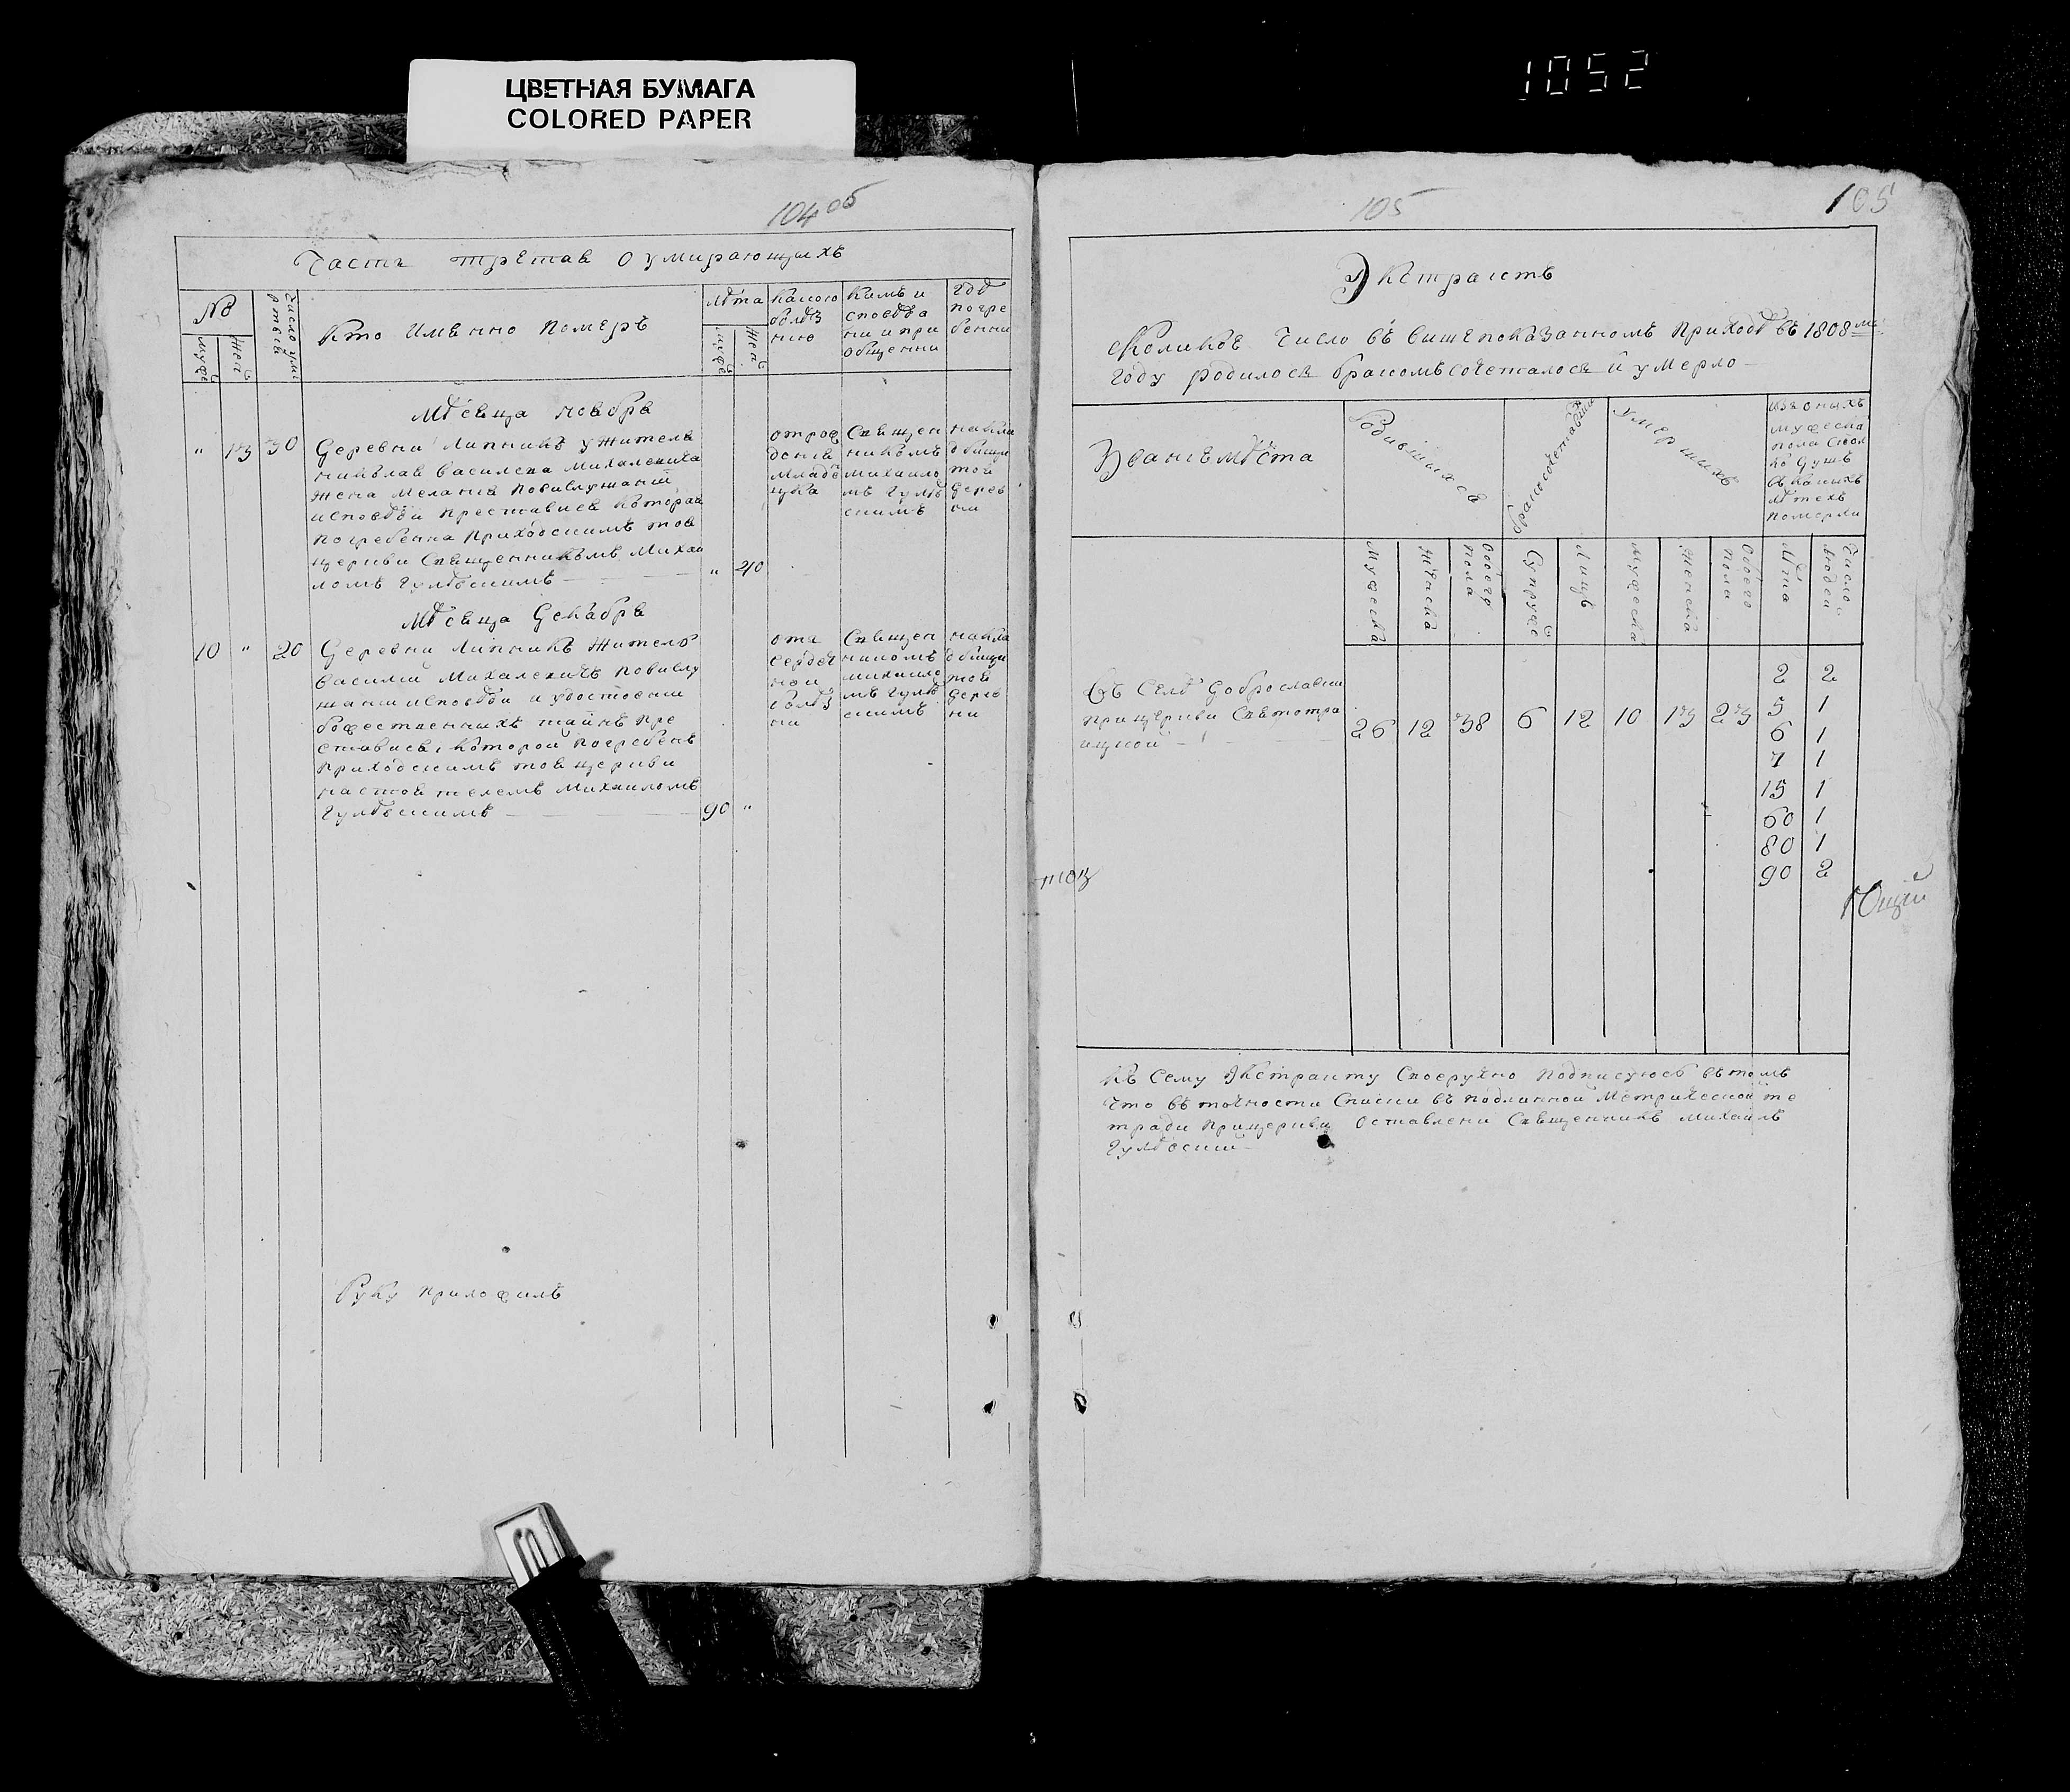 ЦВЕТНАЯ БУМАГА
COLORED PAPER
1052
104 об
Часть третая о умирающихъ
№
муж
жен
Число умертвія
Кто имѣнно померъ
лѣта
муж
жен
какою
болѣз
нию
Кимъ и
споведа
ни и при
общенни
Где
погре
бенни
Мѣсяца ноября
" 13 30
Деревни Липникъ у жителя
николая василева михалевича
жена мелания по выслушании
исповеди преставися которая
погребенна приходскимъ тоя
церкви священникомъ Михаи
ломъ Гулевскимъ
" 40
отрож
дения
младе
нца
Священ
никомъ
михаило
мъ Гуле
скимъ
на кла
дбищи
той
дерев
ни
Мѣсяца Декабря
10 " 20
Деревни Липникъ житель
василий Михалевичъ по выслу
шании исповеди и удостоении
божественныхъ тайнъ пре
ставися, которой погребенъ
приходскимъ тоя церкви
настоятелемъ михаиломъ
Гулевскимъ
90 "
отъ
сердеч
ной
болез
ни
Священ
никомъ
михаило
мъ Гуле
скимъ
на кла
дбищи
той
дере
ни
Руку приложилъ
105
105
Экстрактъ
Коликое число въ вишепоказанномъ приходе въ 1808мъ
году родилося бракомъ сочеталося и умерло
Звание мѣста
Родившихся
бракосочетавши
умершихъ
изъ оныхъ
мужеска
пола скол
ко душъ
въ какихъ
летехъ
померли
Мужеска
Женска
Обоего пола
Супруже
Лицъ
Мужеска
Женска
Обоего пола
Лѣта
Число людей
Въ Селѣ Доброславки
при церкви Святотро
ицкой
26 12 38 6 12 10 13 23
2 2
5 1
6 1
7 1
15 1
60 1
80 1
90 2
Къ сему экстракту своеручно подписуюсь въ томъ
что въ точности списки въ подлинной метрической те
тради при церкви оставлени священникъ михаилъ
Гулевский